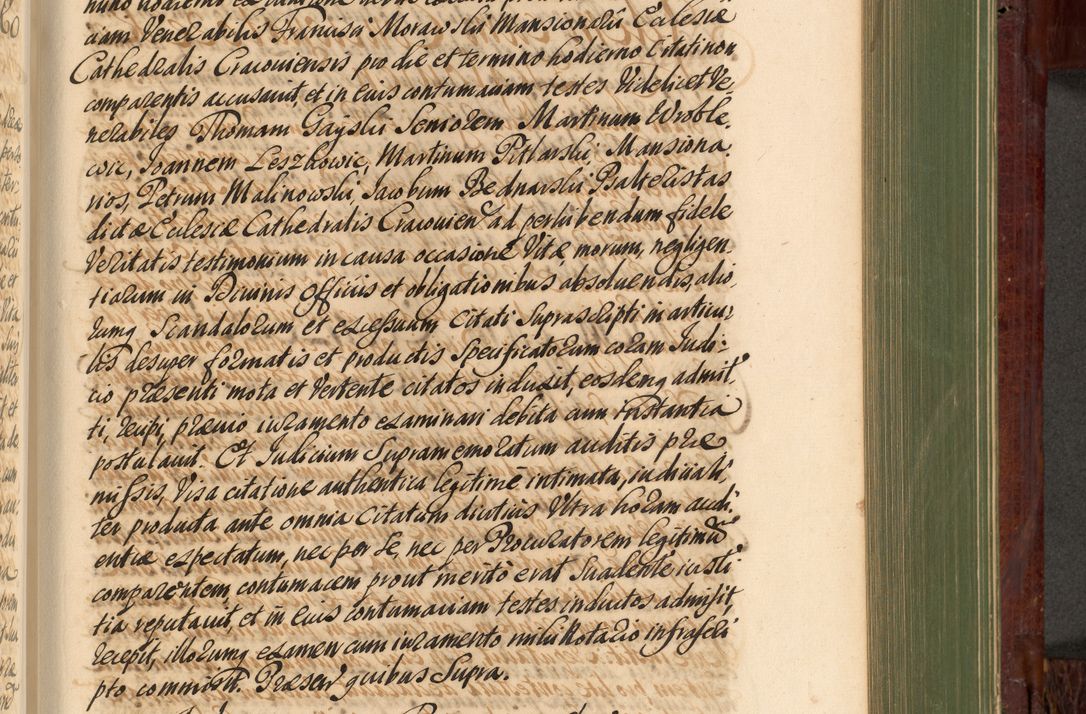 ciam Venerabilis Francisci Morawski Mansionarii Ecclesiæ
Cathedralis Cracoviensis pro die et termino hodierno citati non
comparentis accusavit, et in eius contumaciam testes Videlicet Ve-
nerabiles Thomam Gayski Seniorem Martinum Wroble
wic, Joannem Leszkowic, Martinum Pitlarski Mansiona
rios, Petrum Malinowski, Jacobum Bednarski Psalteristas
dictæ Ecclesiæ Cathedralis Cracovien ad perhibendum fidele
Veritatis testimonium in causa occasione Vitæ morum, negligen
tiarum in Divinis Officiis et obligationibus absolvendis, alio,
rumq Scandalorum et excessuum Citati Suprascripti in articu,
lis desuper formatis et productis Specificatorum coram Judi-
cio præsenti mota et Vertente citatos induxit, eosdemq admit
ti, recipi, prævio iuramento examinari debita cum instantia
postulavit. Et Judicium Supramemoratum auditis præ
missis, Visa citatione authentica legitimè intimata, judiciali
ter producta ante omnia Citatum diutius Ultra horam audi
entiæ expectatum, nec per se, nec per Procuratorem legitimū
comparentem, contumacem prout meritò erat Suadente iusti
tia reputavit, et in eius contumaciam testes inductos admisit,
recepit, illorumq examen cum iuramento mihi Notario infrascri
pto commisit. Præsen quibus Supra.